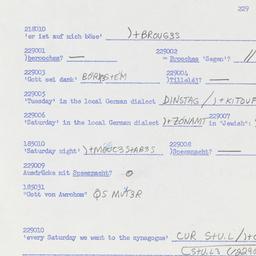 229
218010
'er ist auf mich böse' )+BROUG3S
229001 229002
)berooches? — = Brooches 'Segen'? //
229003 229004
'Gott sei dank' )Tillelä? —
229005
'Tuesday' in the local German dialect DINSTAG /)+KITOUF
229006 229007
'Saturday' in the local German dialect )+ZONAMT in "Jewish":
185010 229008
'Saturday night' )Speeznacht? —
229009
Ausdrücke mit Speeznacht? 0
185031
"Gott von Awrohom"
229010
'every Saturday we went to the synagogue' CUR STU.L/)+C